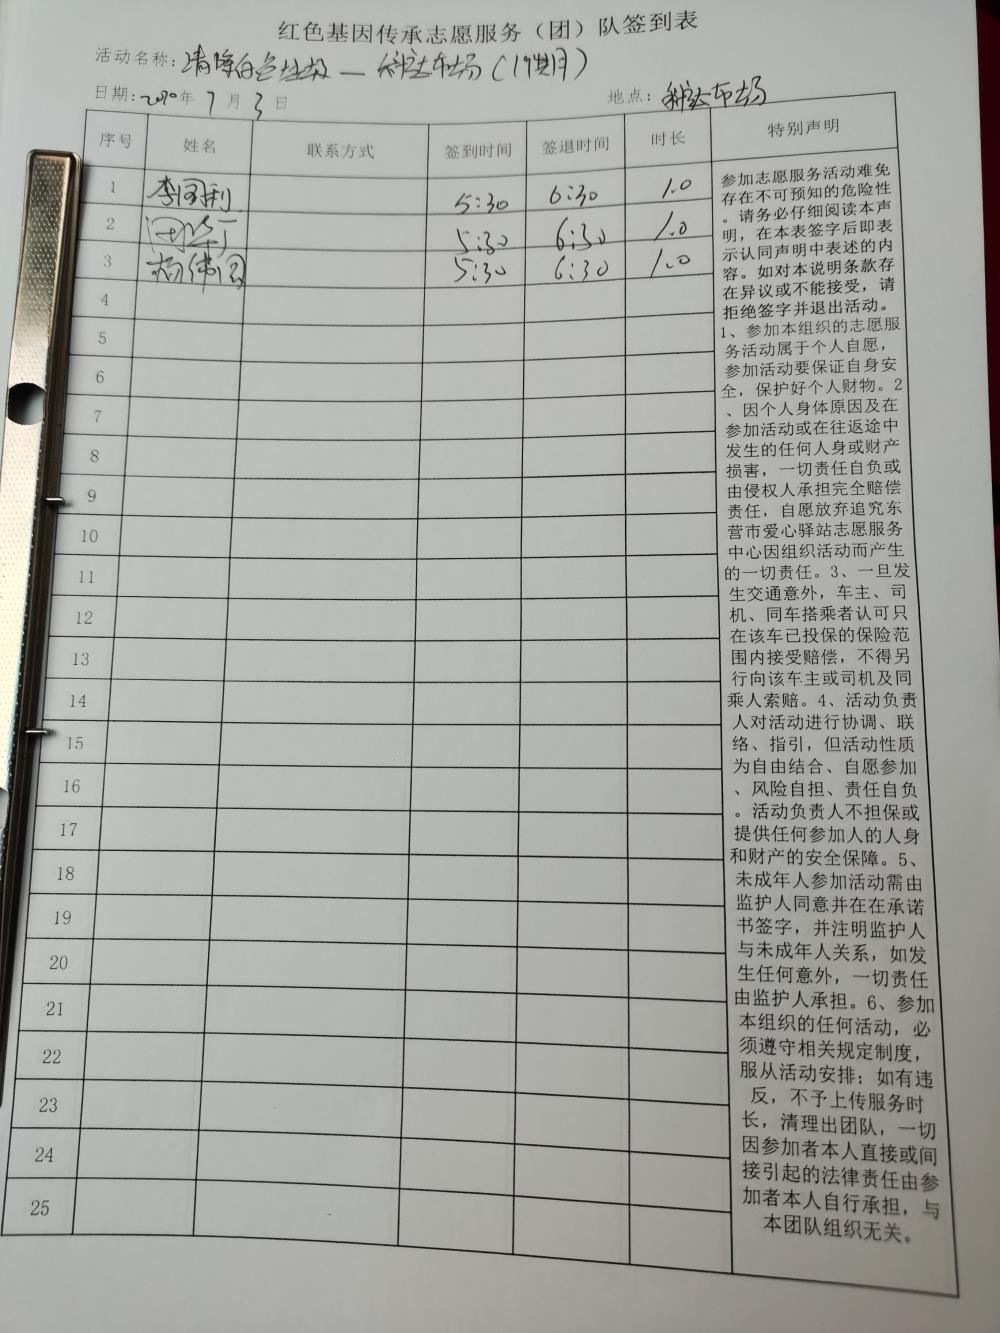 红色基因传承志愿服务（团）队签到表
活动名称：清除白色垃圾—市场
日期：2020年7月3日 地点：市场
序号 姓名 联系方式 签到时间 签退时间 时长 特别声明
1 李国利 5:30 6:30 1.0
2 5:30 6:30 1.0
3 杨伟国 5:30 6:30 1.0
4
5
6
7
8
9
10
11
12
13
14
15
16
17
18
19
20
21
22
23
24
25
参加志愿服务活动难免
存在不可预知的危险性
。请务必仔细阅读本声
明，在本表签字后即表
示认同声明中表述的内
容。如对本说明条款存
在异议或不能接受，请
拒绝签字并退出活动。
1、参加本组织的志愿服
务活动属于个人自愿，
参加活动要保证自身安
全，保护好个人财物。2
、因个人身体原因及在
参加活动或在往返途中
发生的任何人身或财产
损害，一切责任自负或
由侵权人承担完全赔偿
责任，自愿放弃追究东
营市爱心驿站志愿服务
中心因组织活动而产生
的一切责任。3、一旦发
生交通意外，车主、司
机、同车搭乘者认可只
在该车已投保的保险范
围内接受赔偿，不得另
行向该车主或司机及同
乘人索赔。4、活动负责
人对活动进行协调、联
络、指引，但活动性质
为自由结合、自愿参加
、风险自担、责任自负
。活动负责人不担保或
提供任何参加人的人身
和财产的安全保障。5、
未成年人参加活动需由
监护人同意并在在承诺
书签字，并注明监护人
与未成年人关系，如发
生任何意外，一切责任
由监护人承担。6、参加
本组织的任何活动，必
须遵守相关规定制度，
服从活动安排；如有违
反，不予上传服务时
长，清理出团队，一切
因参加者本人直接或间
接引起的法律责任由参
加者本人自行承担，与
本团队组织无关。